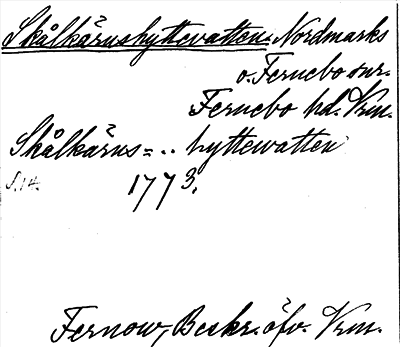 Skålkärnshyttevatten. Nordmarks
o. Fernebo snr.
Fernebo hd. Vrm.
Skålkärns=.. hyttewatten
S. 14. 1773.
Fernow, Beskr. öfv. Vrm.